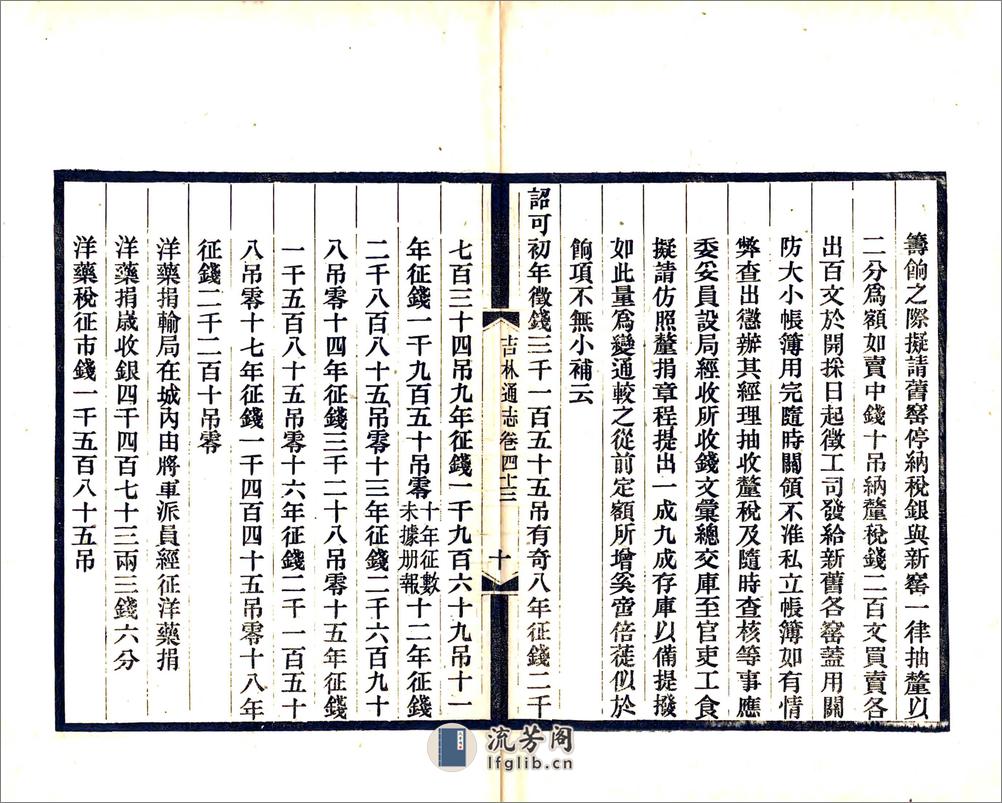 籌餉之際擬請舊窰停納稅銀與新窰一律抽釐以
二分爲額如賣中錢十吊納釐稅錢二百文買賣各
出百文於開採日起徵工司發給新舊各窰蓋用關
防大小帳簿用完隨時關領不准私立帳簿如有情
弊查出懲辦其經理抽收釐稅及隨時查核等事應
委妥員設局經收所收錢文彙總交庫至官吏工食
擬請仿照釐捐章程提出一成九成存庫以備提撥
如此量爲變通較之從前定額所增奚啻倍蓰似於
餉項不無小補云
詔可初年徵錢三千一百五十五吊有奇八年征錢二千
吉林通志卷四十三
十
七百三十四吊九年征錢一千九百六十九吊十一
年征錢一千九百五十吊零十年征數未據册報十二年征錢
二千八百八十五吊零十三年征錢二千六百九十
八吊零十四年征錢三千二十八吊零十五年征錢
一千五百八十五吊零十六年征錢二千一百五十
八吊零十七年征錢一千四百四十五吊零十八年
征錢一千二百十吊零
洋藥捐輸局在城內由將軍派員經征洋藥捐
洋藥捐歲收銀四千四百七十三兩三錢六分
洋藥稅征市錢一千五百八十五吊
流芳阁
lfglib.cn